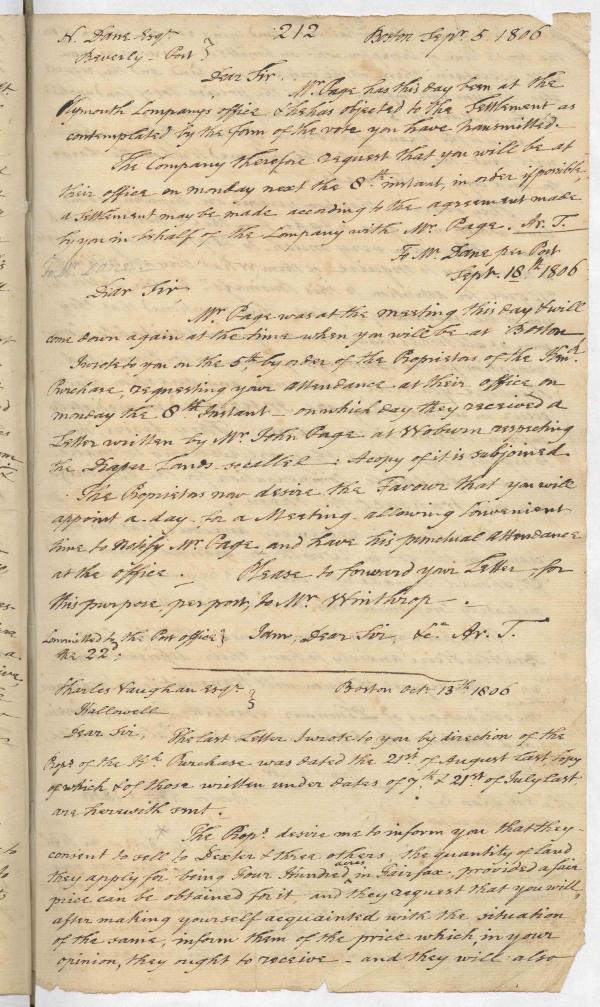 212
N. Dane Esqr. Boston Sepr. 5. 1806
Beverly - Post }
Dear Sir.
Mr. Page has this day been at the
Plymouth Company's office & he has objected to the Settlement as
contemplated by the form of the vote you have transmitted.
The Company therefore request that you will be at
their office on monday next the 8th instant, in order if possible,
a settlement may be made according to the agreement made
by you in behalf of the Company with Mr. Page. Ar. T.
To Mr. Dane per Post
Sept. 18th 1806
Dear Sir,
Mr. Page was at the meeting this day & will
come down again at the time when you will be at Boston
I wrote to you on the 5th, by order of the Proprietors of the
Purchase, requesting your attendance at their office on
monday the 8th Instant - on which day they received a
Letter written by Mr. John Page at Woburn respecting
the Draper Lands so called: A copy of it is subjoined.
The Proprietors now desire the Favour that you will
appoint a day for a Meeting allowing Convenient
time to Notify Mr. Page, and have his punctual attendance
at the office. Please to forward your Letter, for
this purpose, per post, to Mr. Winthrop.
Committed to the Post office } I am, Dear Sir, &c. Ar. T.
the 22d,
Charles Vaughan Esqr. } Boston Octr. 13th 1806
Hallowell
Dear Sir, The last Letter I wrote to you by direction of the
Proprs. of the Purchase was dated the 21st of August last Copy
of which & of those written under dates of 7th & 21st of July last
are herewith sent.
The Proprs. desire me to inform you that they
consent to sell to Dexter & three others, the quantity of Land
they apply for being Four Hundred acres in Fairfax, provided a fair
price can be obtained for it, and they request that you will,
after making yourself acquainted with the situation
of the same, inform them of the price which, in your
opinion, they ought to receive - and they will also